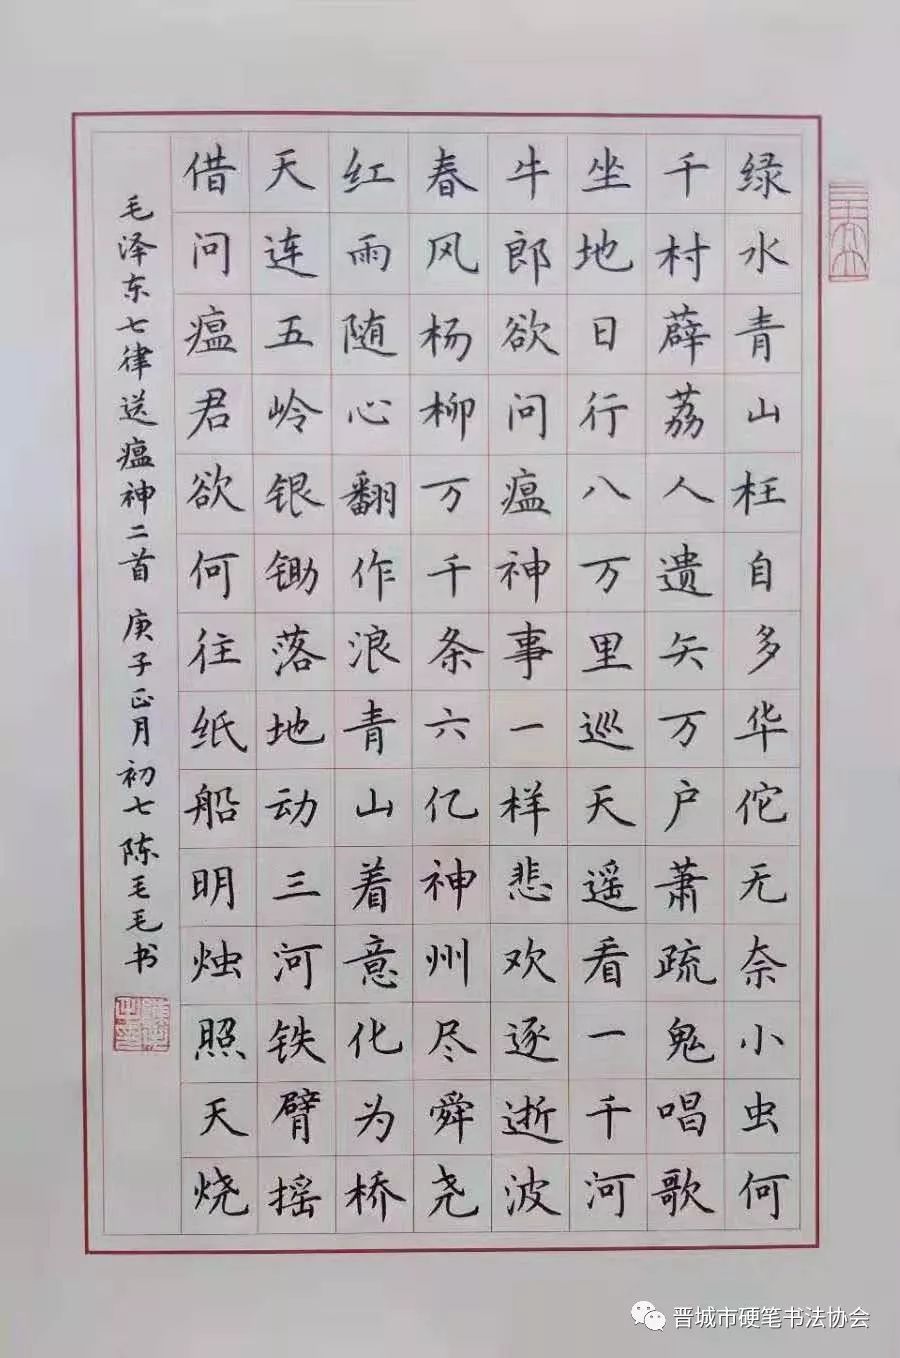 绿水青山枉自多华佗无奈小虫何
千村薜荔人遗矢万户萧疏鬼唱歌
坐地日行八万里巡天遥看一千河
牛郎欲问瘟神事一样悲欢逐逝波
春风杨柳万千条六亿神州尽舜尧
红雨随心翻作浪青山着意化为桥
天连五岭银锄落地动三河铁臂摇
借问瘟君欲何往纸船明烛照天烧
毛泽东七律送瘟神二首 庚子正月初七陈毛毛书
晋城市硬笔书法协会